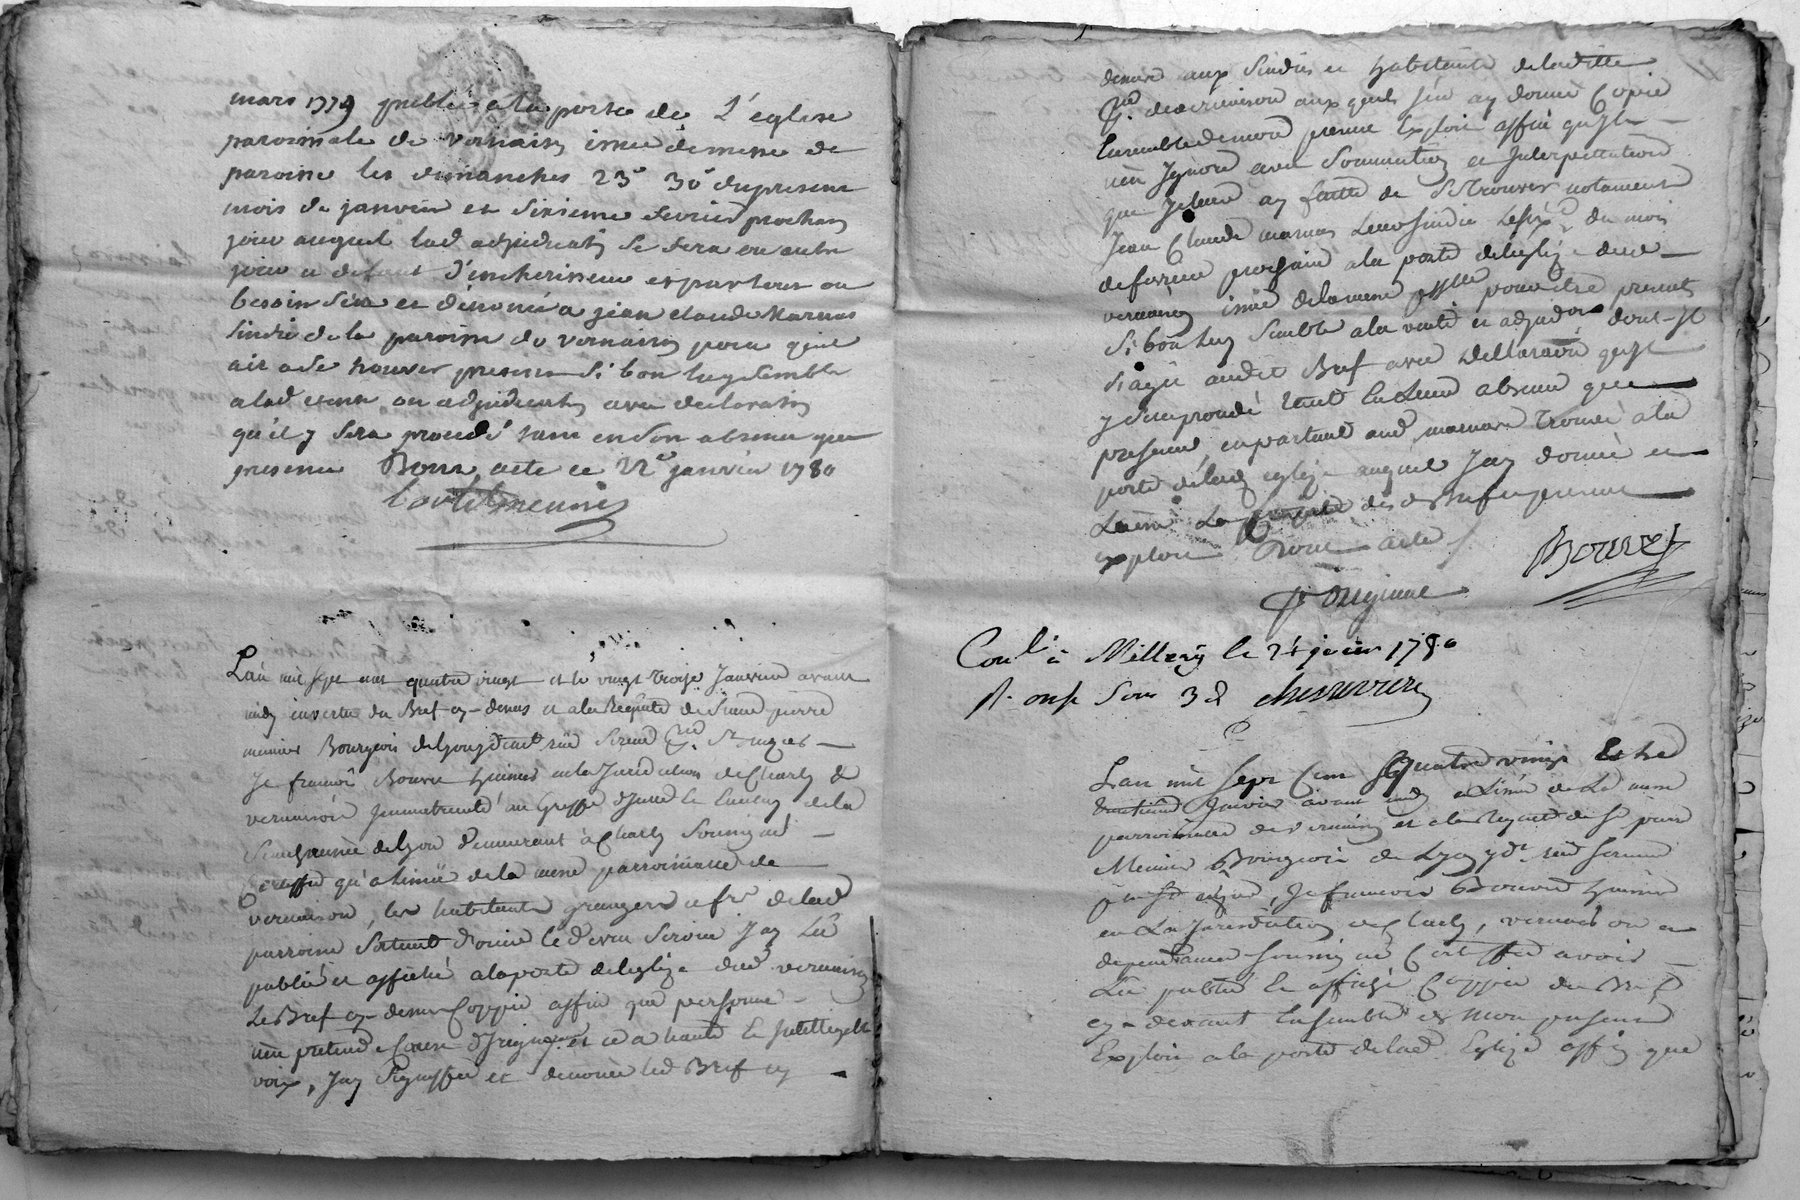 mars 1779 publié a la porte de L'église
paroissiale de vernaison issue de messe de
paroisse les dimanches 23e 30e du present
mois de janvier et sixieme fevrier prochain
jour auquel lad adjudicaton se fera ou autre
jour a defaut d'encherisseur et par tout ou
besoin sera et dénoncé a jean claude Marnas
sindic de la paroisse de vernaison pour qu'il
ait a se trouver present si bon luy semble
a lad vente ou adjudicaton avec declaraton
qu'il y sera procedé tant en son absence que
presence Dont acte ce 22e janvier 1780
L'an mil sept cent quatre vingt et le vingt troise Janvier avant
midy en vertu du Bref cy-dessus et a la Requete de Sieur pierre
meunier Bourgeois de Lyon
Je françois Bouvet huissier en la Juridiction de Charly &
vernaison Immatriculé au Greffe d'Icelle
Senechaussée de Lyon demeurant à Charly Soussigné
Certiffie qu'a l'issüe de la messe parroissialle de
vernaison, les habitants grangers et fr de lad
parroisse sortant d'ouir le devin service J'ay Lû
publié et affiché a la porte de l'eglize dud vernaison
Le Bref cy-dessus Coppié affin que personne
n'en pretende Cause d'Ignorance et ce a haute & Intelligible
voix, J'ay Signiffié et denoncé led Bref cy
dessus aux Sindics et habitants de laditte
parroisse de vernaison auxquels j'en ay donné Copie
Ensemble de mon present Exploit affin qu'ils
n'en Ignore avec Sommation et Interpellation
que je leur ay faitte de se trouver notament
Jean Claude marnas Leur sindic Le sixe du mois
de fevrier prochain a la porte de l'eglize dud
vernaison issue de la messe pour être present
si bon luy semble a la vente et adjudon dont-Il
s'agit audit Bref avec Declaration qu'Il
y sera procedé tant En Leur absence que
presence, en parlant aud marnas trouvé a la
porte de lad eglize auquel J'ay donné et
Laissé La Coppie des d Bref et present
exploit Dont acte /
Bouvet
Coné à Millery le 24 janvier 1780
R. onze Sous 3 d
L'an mil Sept Cent Quatre vingt Et le
trentieme Janvier avant midy a L'issüe de La messe
parroissialle de vernaison et a la Requete de Sr pierre
Meunier Bourgeois de Lyon
Je françois Bouvet huissier
en La Jurisdiction de Charly, vernaison et
dependances soussigné Certiffie avoir
Lû publié & affiché Coppie du Bref
cy-devant Ensemble de Mon present
Exploit a la porte de lad Eglize affin que